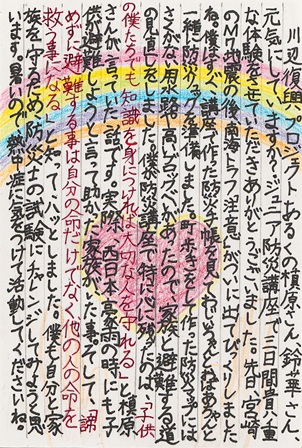 川辺復興プロジェクトあるくの槙原さん、鈴華さん、
元気にしていますか？ジュニア防災講座で三日間貴重
な体験をさせていただき、ありがとうございました。先日、宮崎
のM7地震の後、南海トラフ注意がついに出てびっくりしました
ね。僕はすぐ講座で作った防災手帳を見て、おじいちゃんとおばあちゃんと
一緒に防災バッグを準備しました。町歩きをして作った防災マップには
きけんな用水路や高いブロックべいがあったので、家族と避難する道
の見直しをしました。僕が防災講座で特に心に残ったのは、「子供
の僕たちでも知識を身につければ大切な人を守れる」と槙原
さんが言っていた話です。実際、西日本豪雨の時にも子
供が避難しようと言って助かった家族がいた事。そして、「諦
めずに避難する事は自分の命だけでなく他の人の命を
救う事になる」と知って、ハッとしました。僕も自分と家
族を守るため、防災士の試験にチャレンジしてみようと思
います。暑いので熱中症に気をつけて活動してくださいね。